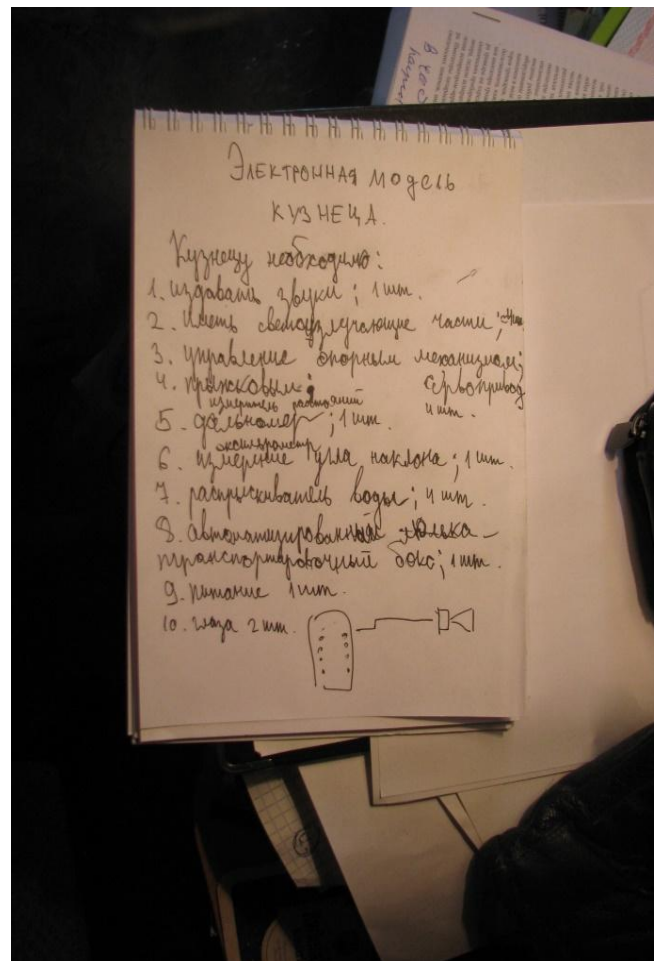 В 20
Электронная модель
КУЗНЕЦА.
Кузнецу необходимо:
1. издавать звуки; 1 шт.
2. иметь светоизлучающие части;
3. управление опорным механизмом;
4. прыжковым; сервопривод
измеритель расстояний 4 шт.
5. дальномер; 1 шт.
акселерометр
6. измерение угла наклона; 1 шт.
7. распрыскиватель воды; 4 шт.
8. автоматизированный люлька-
транспортировочный бокс; 1 шт.
9. питание 1 шт.
10. глаза 2 шт.